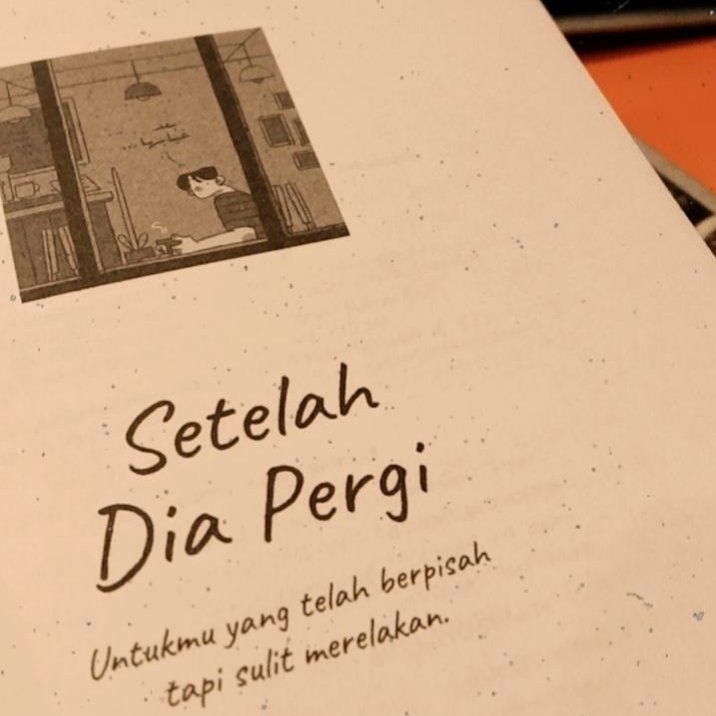 Setelah
Dia Pergi
Untukmu yang telah berpisah
tapi sulit merelakan.